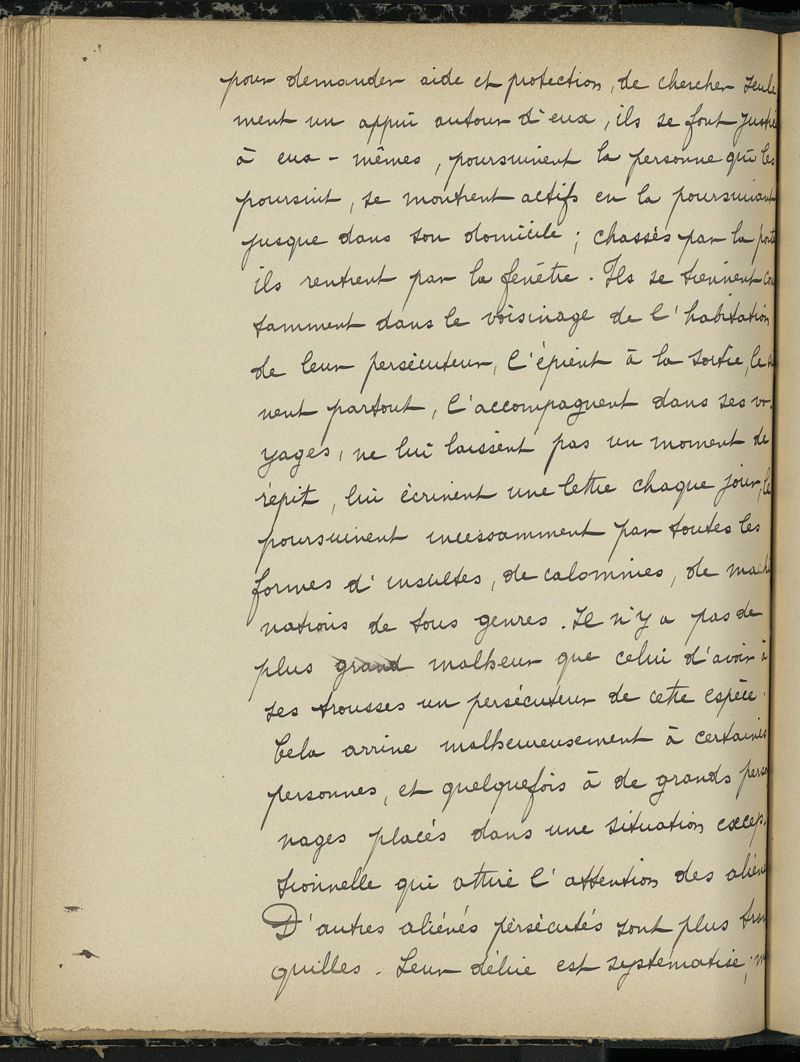 pour demander aide et protection, de chercher seule
ment un appui autour d'eux, ils se font justi
à eux-mêmes, poursuivent la personne qui les
poursuit, se montrent actifs en la poursuivant
jusque dans son domicile ; chassés par la porte
ils rentrent par la fenêtre. Ils se tiennent con
tamment dans le voisinage de l'habitation
de leur persécuteur, l'épient à la sortie, le
vent partout, l'accompagnent dans ses vo-
yages, ne lui laissent pas un moment de
répit, lui écrivent une lettre chaque jour, le
poursuivent incessamment par toutes les
formes d'insultes, de calomnies, de machi
nations de tous genres. Il n'y a pas de
plus grand malheur que celui d'avoir à
ses trousses un persécuteur de cette espèce.
Cela arrive malheureusement à certaines
personnes, et quelquefois à de grands person
nages placés dans une situation excep-
tionnelle qui attire l'attention des aliéné
D'autres aliénés persécutés sont plus tran
quilles. Leur délire est systématisé ;